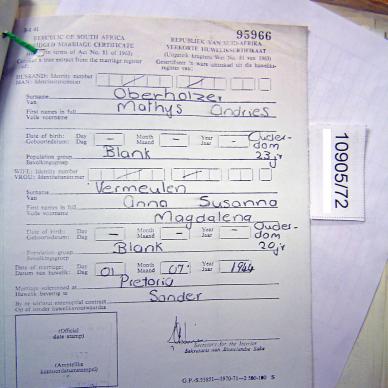 B-I 41
REPUBLIC OF SOUTH AFRICA REPUBLIEK VAN SUID-AFRIKA 95966
ABRIDGED MARRIAGE CERTIFICATE VERKORTE HUWELIKSERTIFIKAAT
(Issued in terms of Act No. 81 of 1963) (Uitgereik kragtens Wet No. 81 van 1963)
a true extract from the marriage register
HUSBAND: Identity number
MAN: Identiteitsnommer
Surname
Van Oberholzer
First names in full Mathys Andries
Volle voorname
Date of birth: Day — Month — Year — Ouder-
Geboortedatum: Dag Maand Jaar dom
Population group Blank 23 jr
Bevolkingsgroep
WIFE: Identity number
VROU: Identiteitsnommer
Surname Vermeulen
Van
First names in full Anna Susanna
Volle voorname Magdalena
Date of birth: Day — Month — Year — Ouder-
Geboortedatum: Dag Maand Jaar dom
Population group Blank 20 jr
Bevolkingsgroep
Date of marriage: Day 01 Month 07 Year 1944
Datum van huwelik: Dag Maand Jaar
Marriage solemnized at Pretoria
Huwelik bevestig te
By or without antenuptial contract Sonder
Op of sonder huweliksvoorwaardes
(Official
date stamp)
(Amptelike
kantoordatumstempel)
Secretary for the Interior
Sekretaris van Binnelandse Sake
10905/72